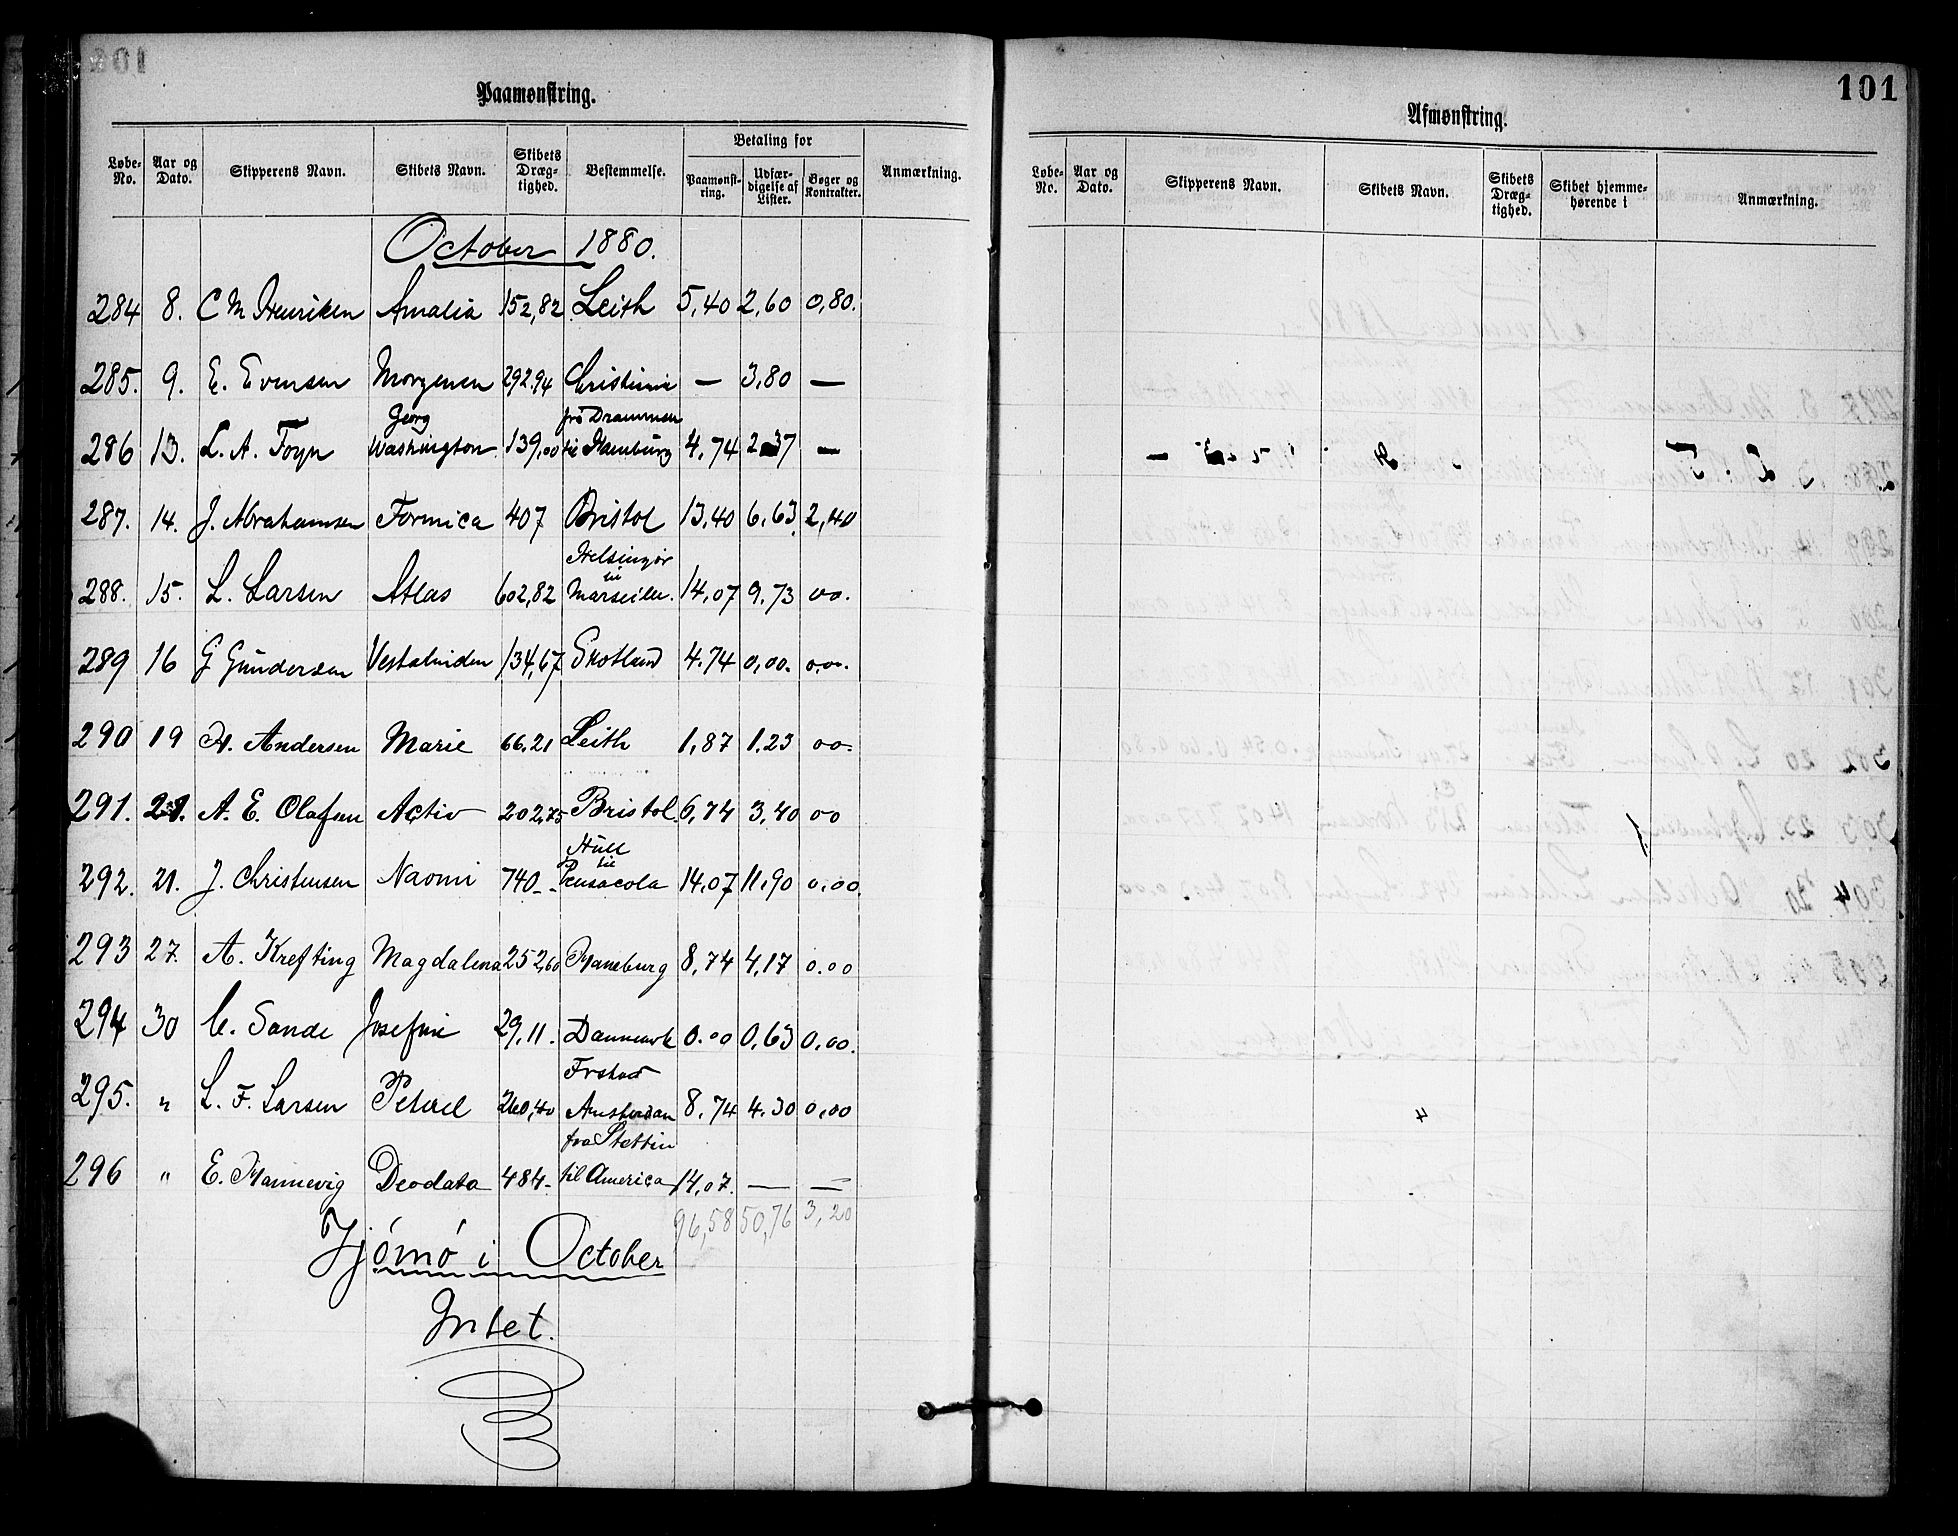 Paamønstring.
Løbe-No. Aar og Dato. Skipperens Navn. Skibets Navn. Skibets Dræg-tighed. Bestemmelse. Betaling for Paamønst-ring. Udfær-digelse af Lister. Bøger og Kontrakter. Anmærkning.
October 1880.
284 8. C M Henriksen Amalia 152,82 Leith 5,40 2,60 0,80.
285. 9. E. Evensen Morgenen 292.94 Christiania — 3,80 —
Georg fra Drammen
286 13. L. A. Foyn Washington 139,00 til Hamburg 4,74 2 37 —
287. 14. J. Abrahamsen Formica 407 Bristol 13,40 6,63 2,40
Helsingør
til
288. 15. L. Larsen Atlas 602,82 Marseille. 14,07 9,73 00.
289 16 G Gundersen Vestalinden 134,67 Skotland 4.74 0,00. 0.00.
290 19 H. Andersen Marie 66.21 Leith 1,87 1.23 00.
291. 21. A. E. Olafsen Activ 202,75 Bristol. 6,74 3,40 00
Hull
til
292. 21. J. Christensen Naomi 740 - Pensacola 14,07 11,90 0,00.
293 27. A. Krefting Magdalena 252,60 Haneburg 8,74 4,17 0.00
294 30 C. Sande Josefine 29,11. Danmark 0.00 0,63 0,00.
Frstad
295. " L. F. Larsen Petrel 260,40 Amsterdam 8,74 4.30 0,00
fra Stettin
296 " E. Hannevig Deodata 484- til America 14,07. — —
96,58 50,76 3,20
Tjömö i October
Intet.
101
Afmønstring.
Løbe-No. Aar og Dato. Skipperens Navn. Skibets Navn. Skibets Dræg-tighed. Skibet hjemme-hørende i Anmærkning.